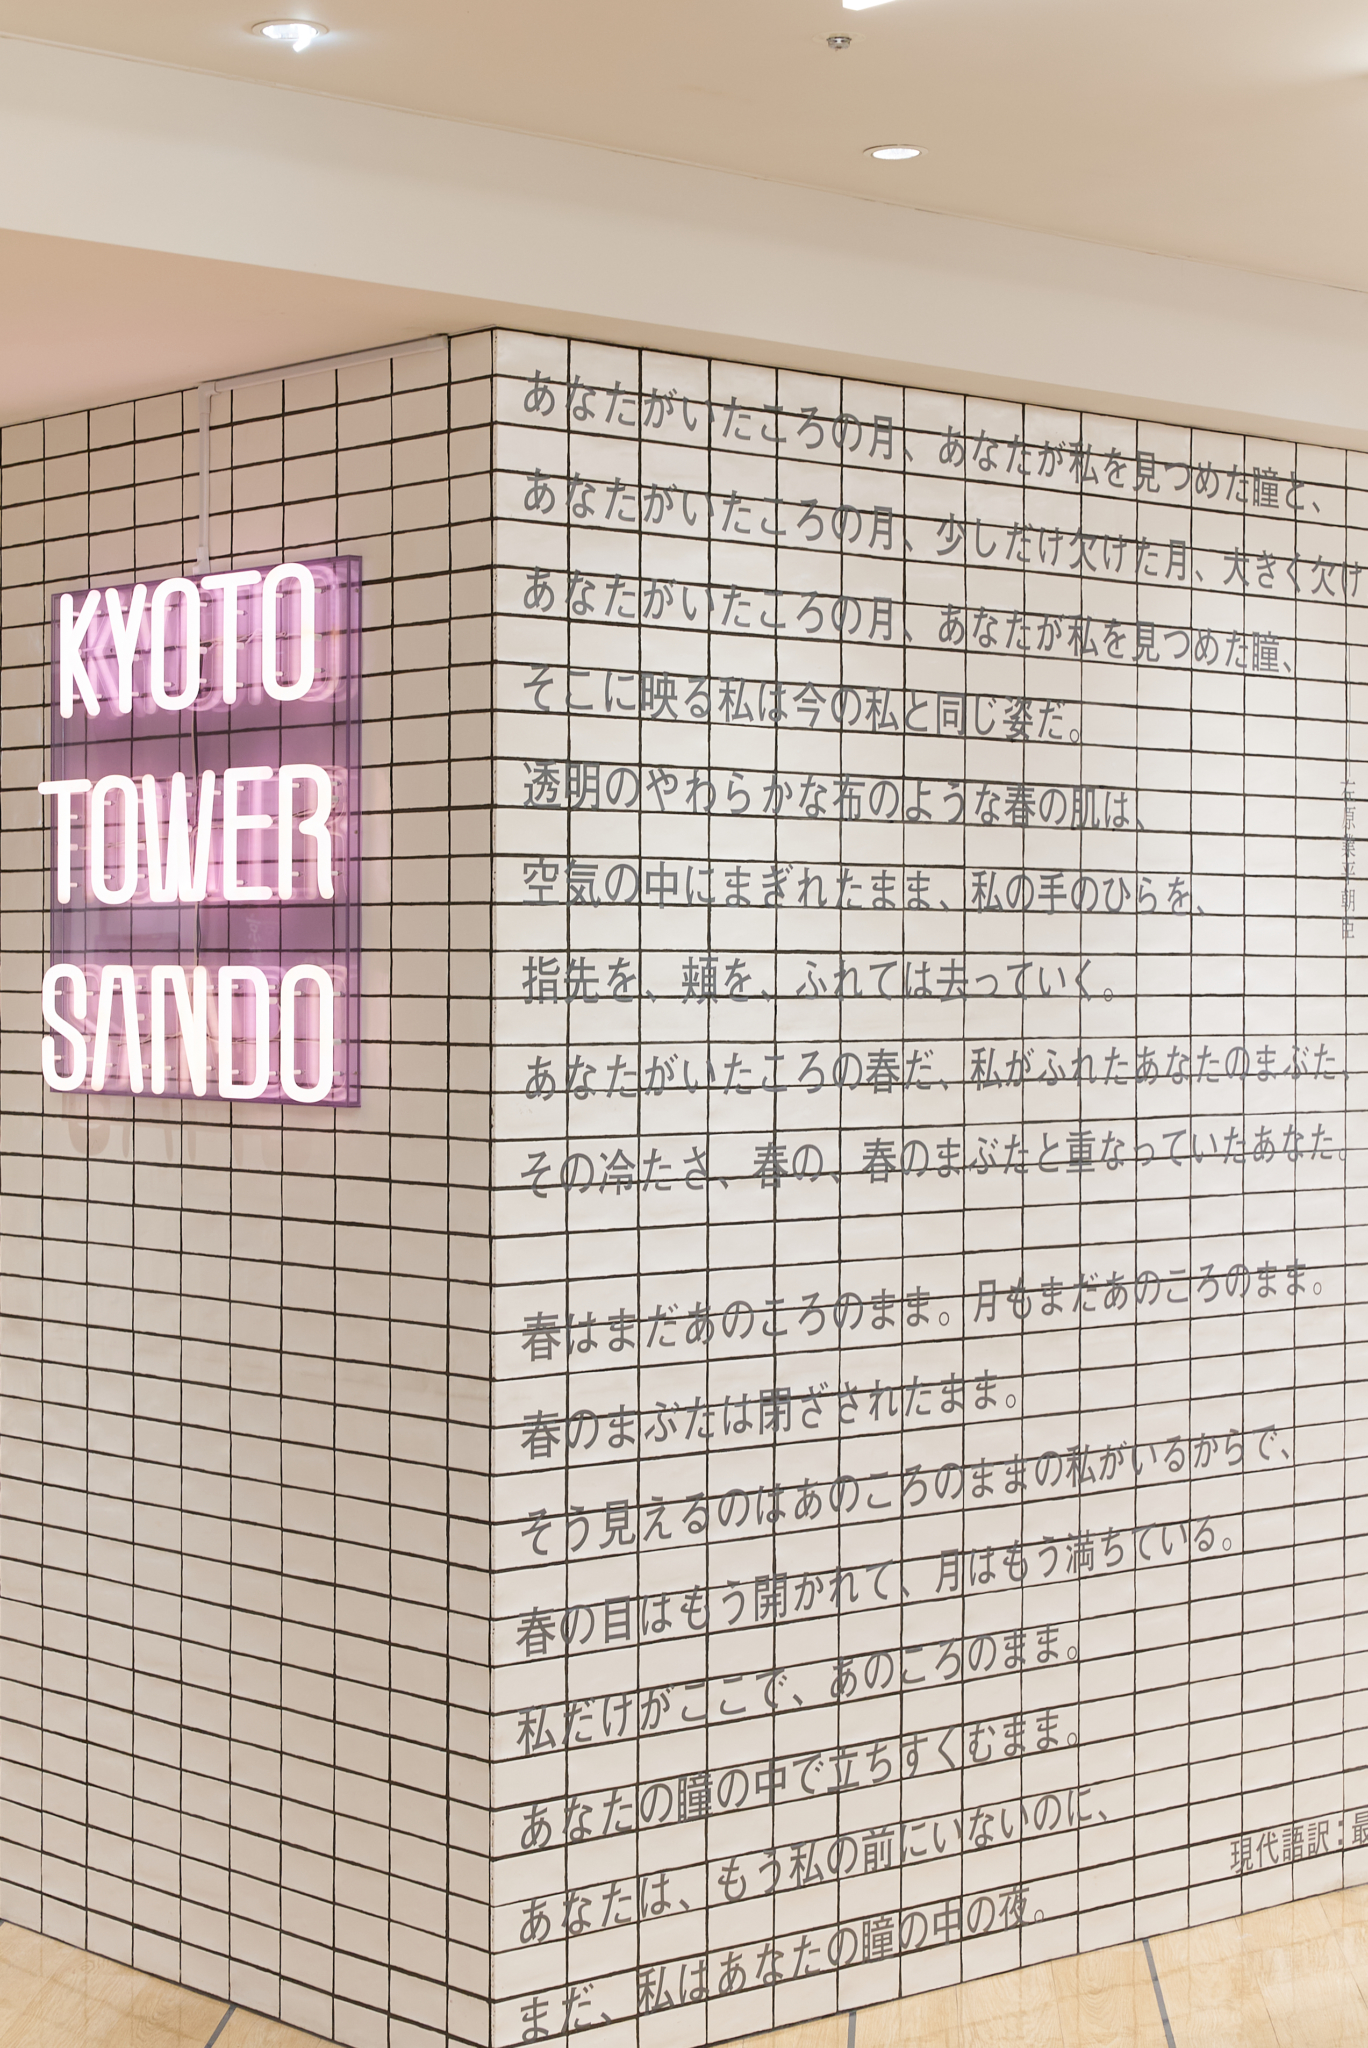 KYOTO
TOWER
SANDO
あなたがいたころの月、あなたが私を見つめた瞳と、
あなたがいたころの月、少しだけ欠けた月、大きく欠け
あなたがいたころの月、あなたが私を見つめた瞳、
そこに映る私は今の私と同じ姿だ。
透明のやわらかな布のような春の肌は、
空気の中にまぎれたまま、私の手のひらを、
指先を、頬を、ふれては去っていく。
あなたがいたころの春だ、私がふれたあなたのまぶた、
その冷たさ、春の、春のまぶたと重なっていたあなた。
春はまだあのころのまま。月もまだあのころのまま。
春のまぶたは閉ざされたまま。
そう見えるのはあのころのままの私がいるからで、
春の目はもう開かれて、月はもう満ちている。
私だけがここで、あのころのまま。
あなたの瞳の中で立ちすくむまま。
あなたは、もう私の前にいないのに、
まだ、私はあなたの瞳の中の夜。
在原業平朝臣
現代語訳：最